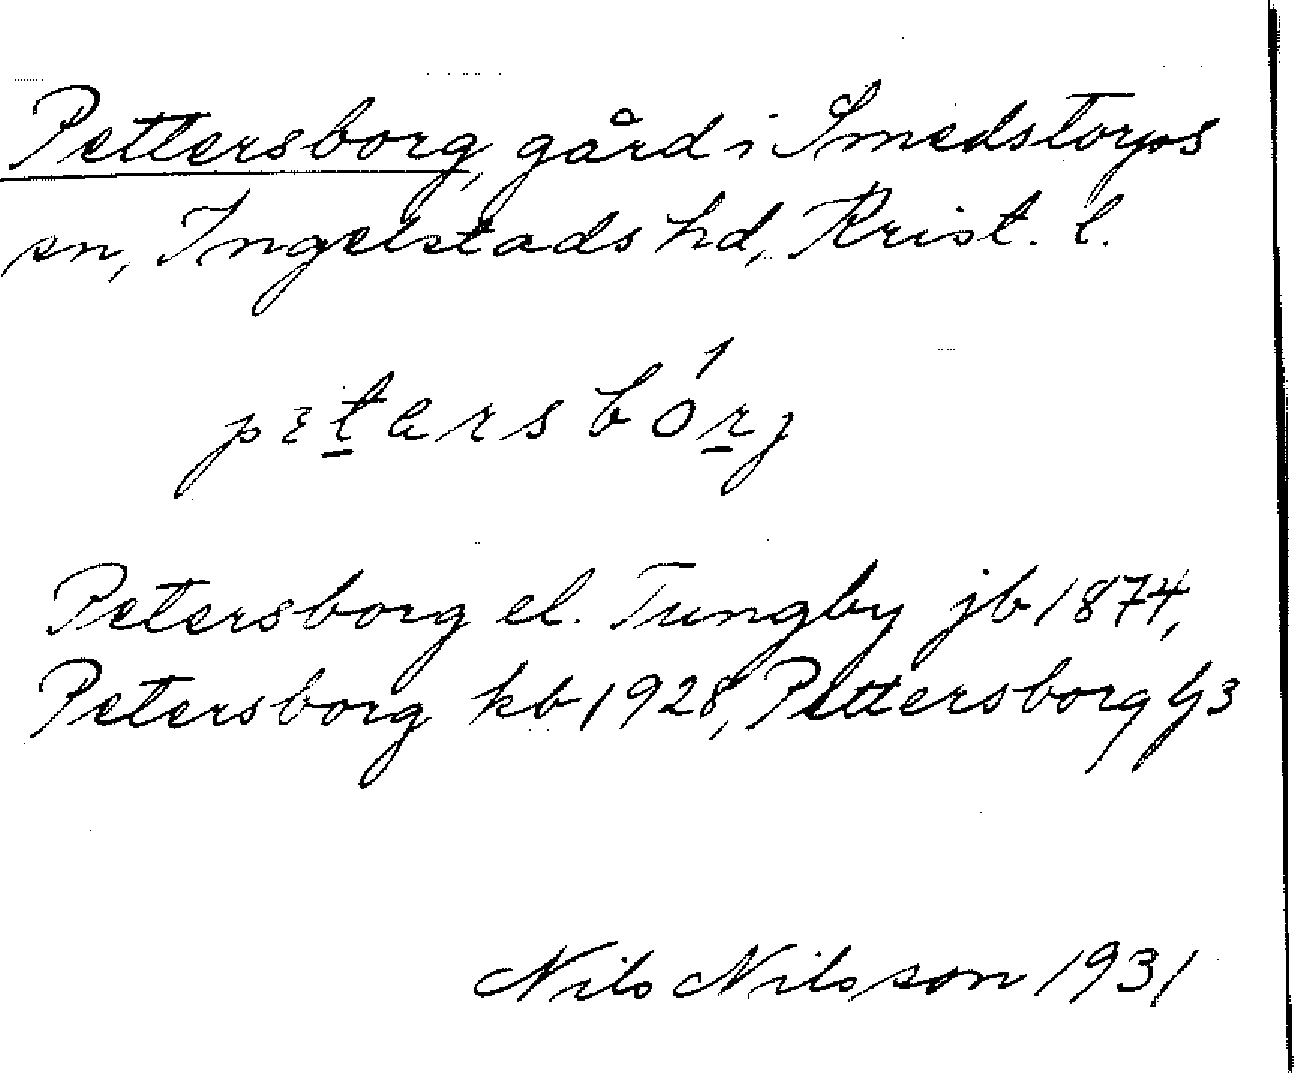 Pettersborg, gård i Smedstorps
sn, Ingelstads hd, Krist. l.
pɛtarsbórj
Petersborg el. Tungby jb 1874,
Petersborg kb 1928, Pettersborg G3
Nils Nilsson 1931